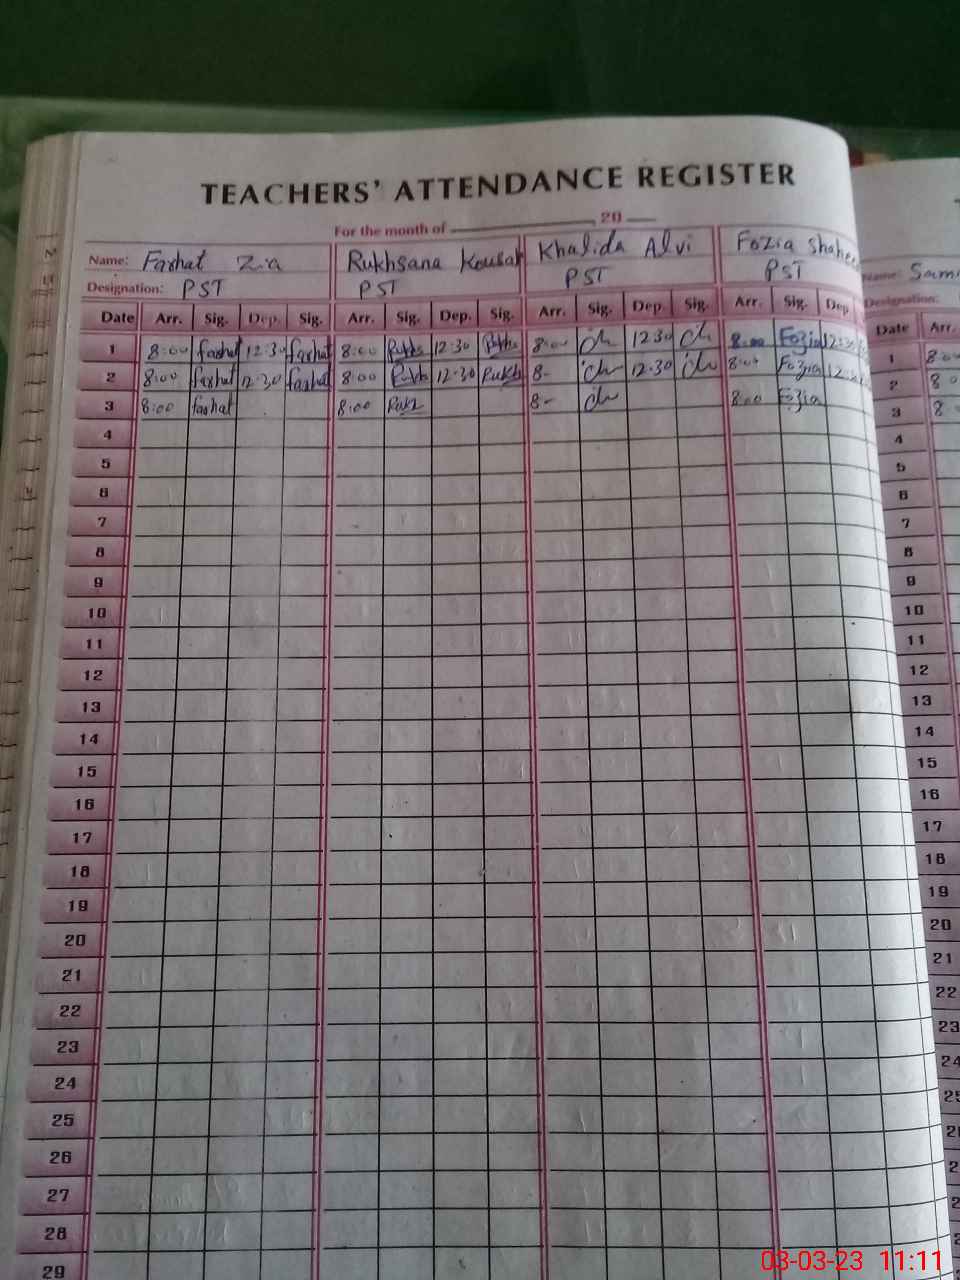 TEACHERS' ATTENDANCE REGISTER
For the month of 20
Name: Farhat Zia Rukhsana Kousar Khalida Alvi Fozia Shaheen Name: Sam
Designation: PST PST PST PST Designation:
Date Arr. Sig. Dep. Sig. Arr. Sig. Dep. Sig. Arr. Sig. Dep. Sig. Arr. Sig. Dep Date Arr.
1 8:00 farhat 12:30 farhat 8:00 Rukhs 12:30 Rukhs 8:00 12 30 8:00 Fozia 12:30 1 8:00
2 8:00 farhat 12:30 farhat 8:00 Rukhs 12:30 Rukhs 8- 12:30 8:00 Fozia 12:30 2 8 0
3 8:00 farhat 8:00 Rukh 8- 8:00 Fozia 3 8
4 4
5 5
6 6
7 7
8 8
9 9
10 10
11 11
12 12
13 13
14 14
15 15
16 16
17 17
18 18
19 19
20 20
21 21
22 22
23 23
24 24
25 25
26
27
28
29
03-03-23 11:11